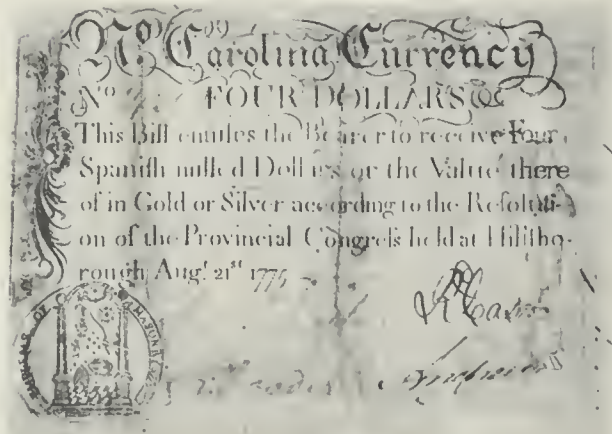 No. Carolina Currency
No FOUR DOLLARS
This Bill entitles the Bearer to receive Four
Spaniſh milled Dollars or the Value there
of in Gold or Silver according to the Reſoluti-
on of the Provincial Congreſs held at Hillſbo-
rough Augt. 21st 1775
MASONRY